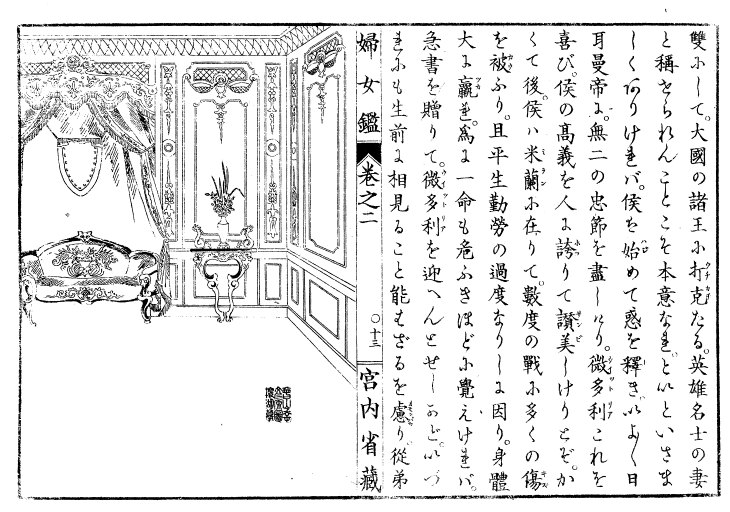 雙にして。大國の諸王に打克たる。英雄名士の妻
と稱せられんことこそ本意なれ」といひといさま
しくありければ。侯を始めて惑を釋き。いよ〳〵日
耳曼帝に。無二の忠節を盡しけり。微多利これを
喜び。侯の高義を人に誇りて讃美しけりとぞ。か
くて後。侯ハ米蘭に在りて。數度の戰に多くの傷
を被ふり。且平生勤勞の過度なりしに因り。身體
大に羸れ。爲に一命も危ふきほどに覺えければ。
急書を贈りて。微多利を迎へんとせしかど。いづ
れにも生前に相見ること能はざるを慮り。從弟
婦女鑑 卷之二 ○十三 宮內省藏